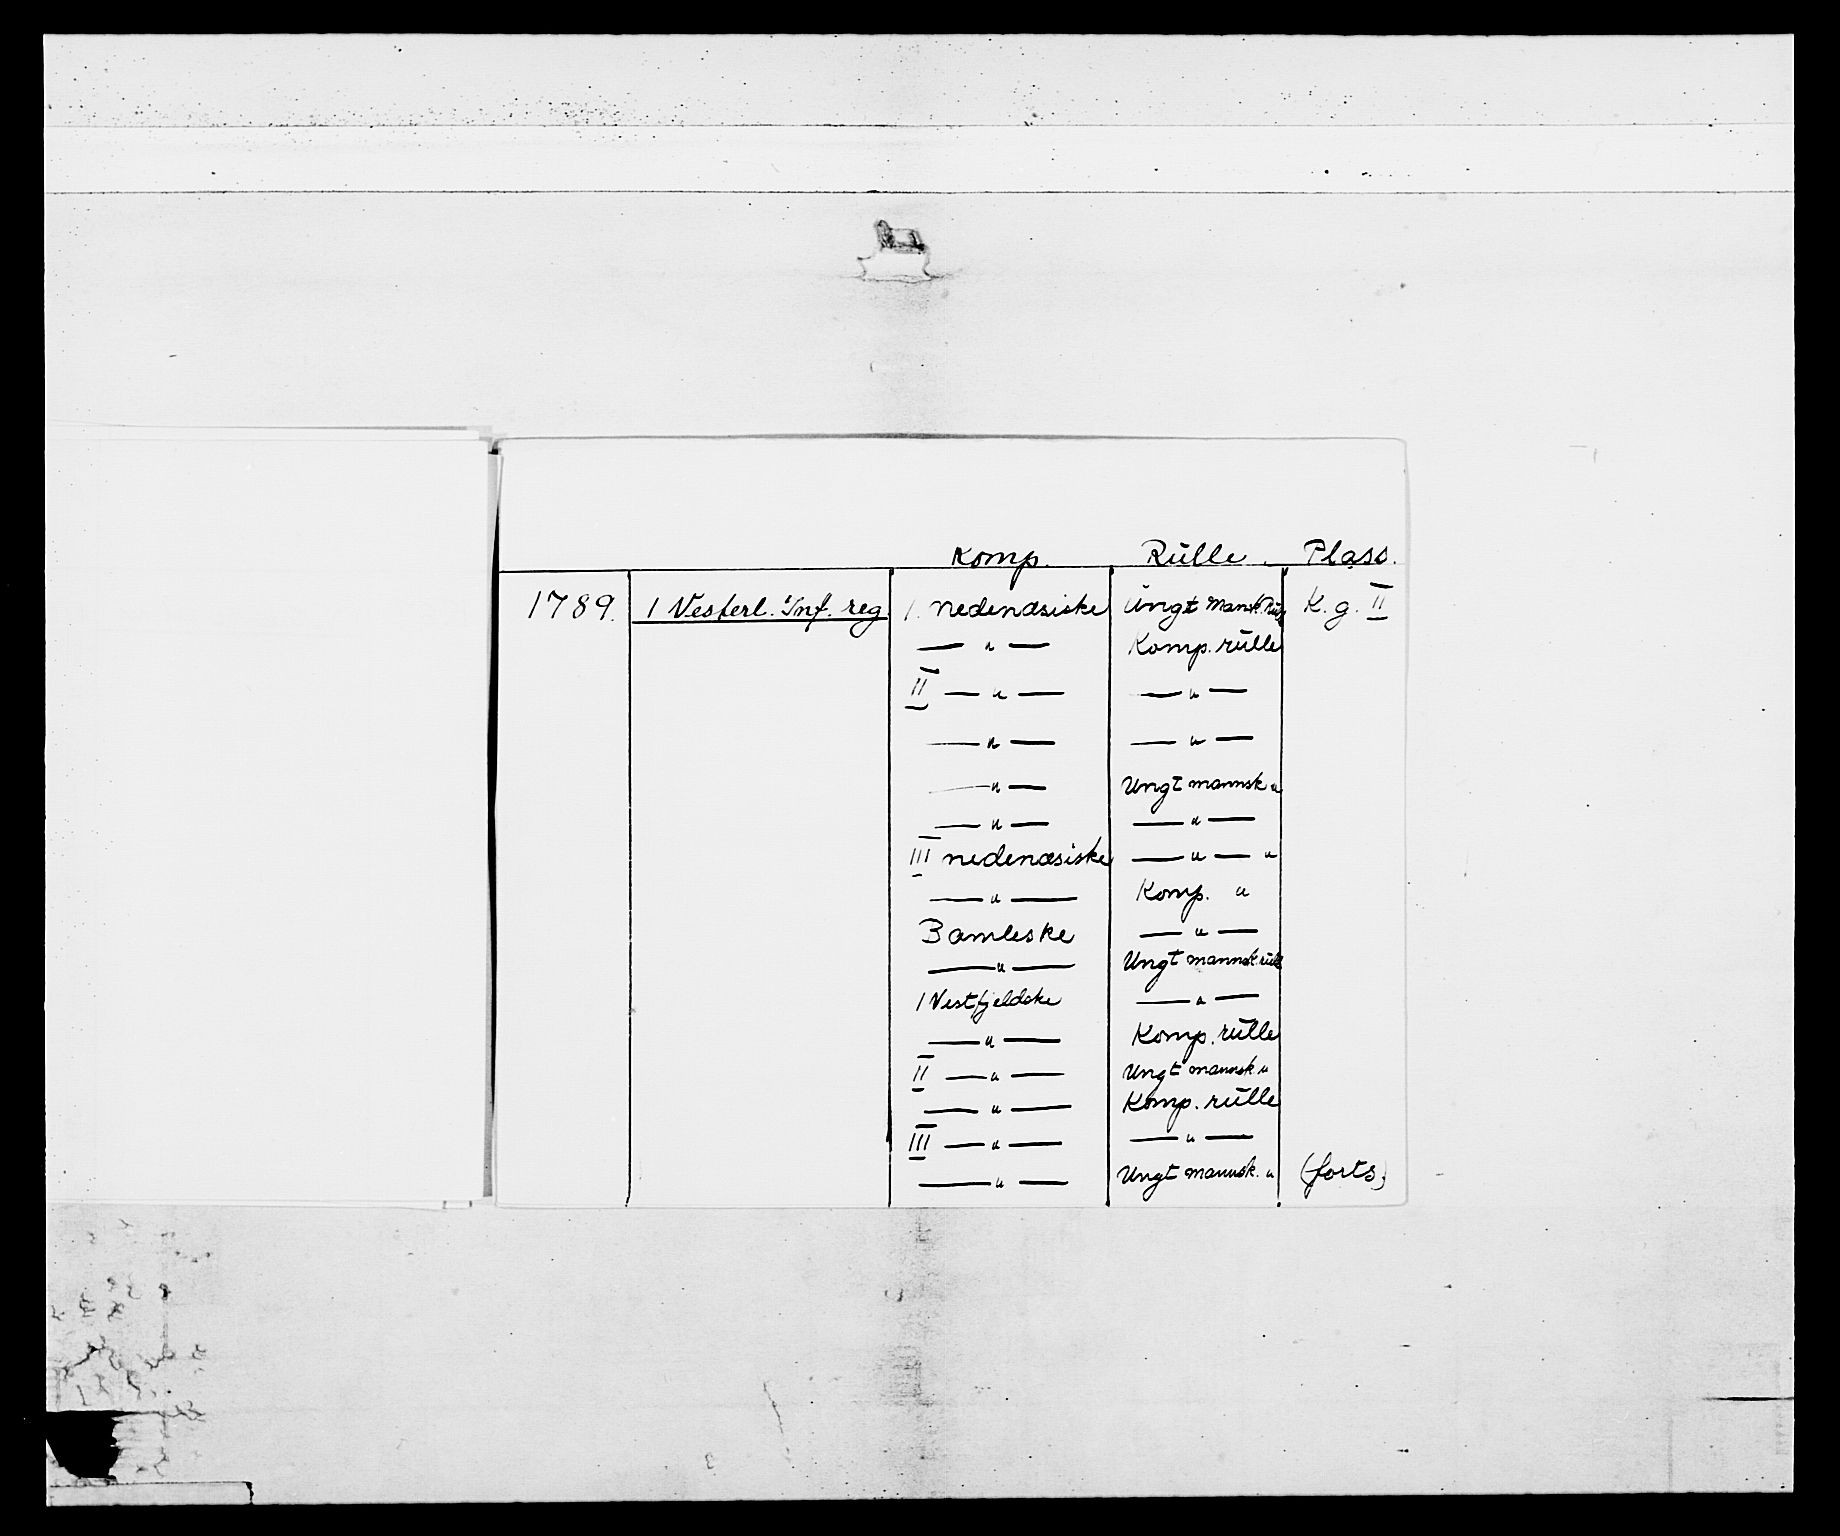 Komp. Rŭlle. Plass.
1789. 1 Vesterl. Inf. reg. 1. nedenæsiske Ungt Mansk. K. g. II
— " — Komp. rŭlle
II — " — — " —
— " — — " —
— " — Ungt mannsk "
— " — — " —
III nedenæsiske — " — "
— " — Komp. "
Bamleske — " —
— " — Ungt mannsk rŭlle
1 Vestfjeldske — " —
— " — Komp. rŭlle
II — " — Ungt mannsk "
— " — Komp. rŭlle
III — " — — " —
— " — Ungt mannsk. " (forts.)